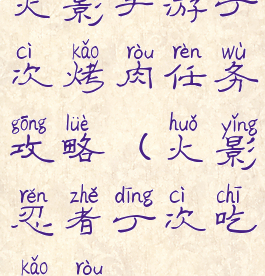 火影手游丁
cì kǎo ròu rèn wù
次烤肉任务
gōng lüè huǒ yǐng
攻略（火影
rěn zhě dīng cì chī
忍者丁次吃
kǎo ròu